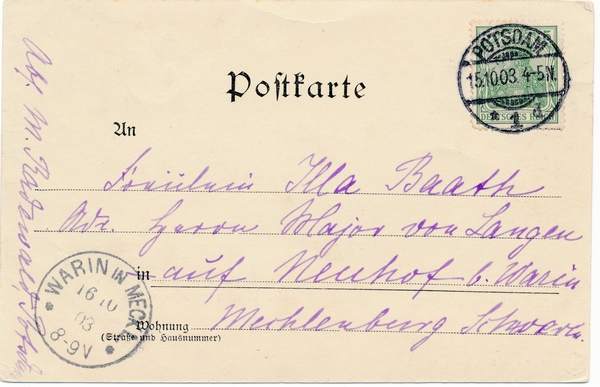 Postkarte
POTSDAM
15.10.03 4-5N.
* 1 d
DEUTSCHES REICH
An
Fräulein Illa Baath
Adr. Herrn Major von Langen
in auf Neuhof b. Warin
Wohnung
(Straße und Hausnummer)
Mecklenburg Schwerin
WARIN IN MECKL.
16 10
03
8-9V
Abs. M.